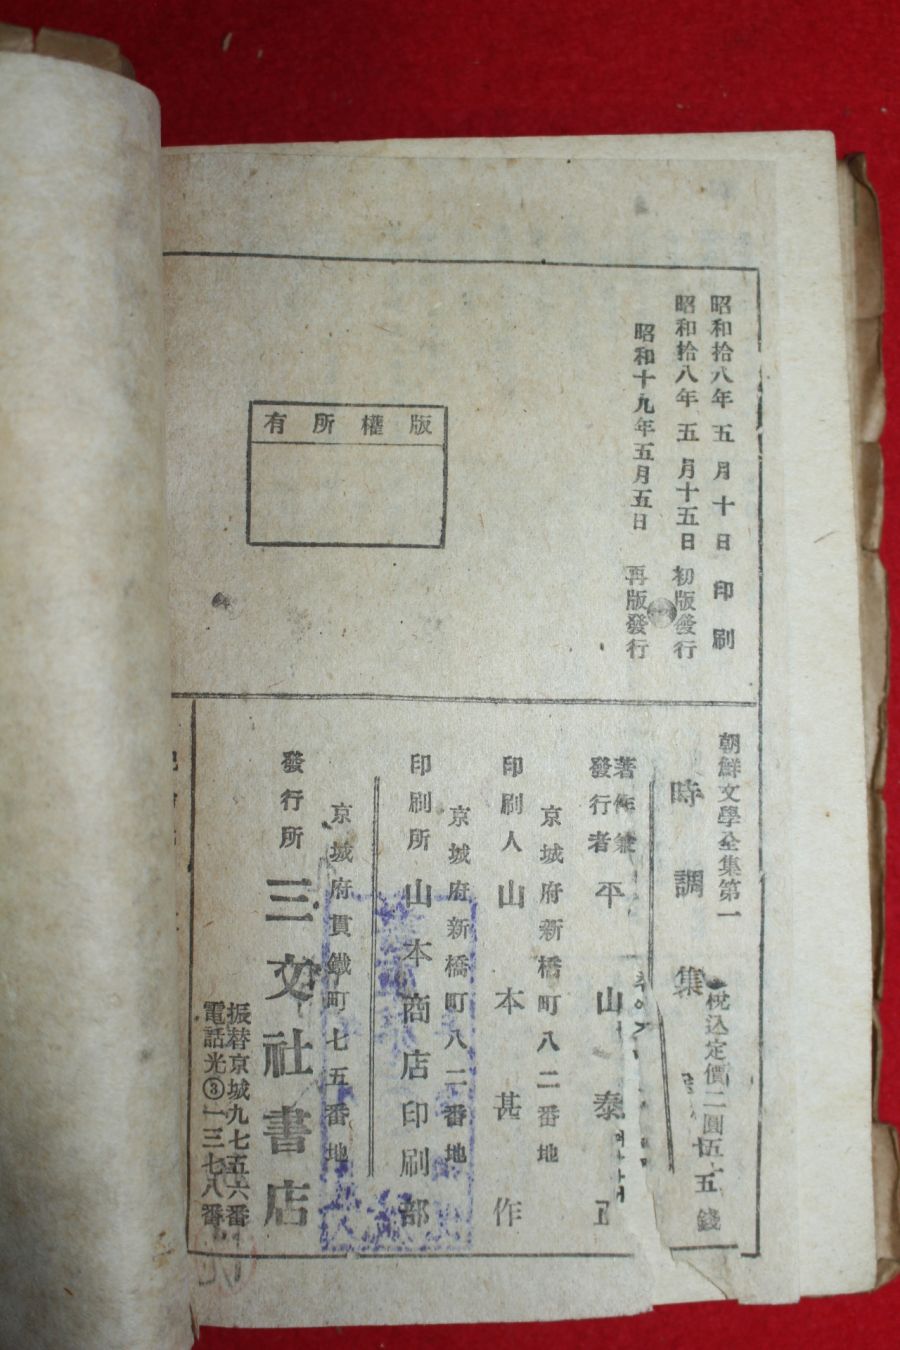 昭和拾八年五月十日印刷
昭和拾八年五月十五日初版發行
昭和十九年五月五日再版發行
版權所有
朝鮮文學全集第一
時調集
稅込定價二圓五五錢
著作兼
發行者 平山泰正
京城府新橋町八二番地
印刷人 山本甚作
京城府新橋町八二番地
印刷所 山本商店印刷部
京城府貫鐵町七五番地
發行所 三文社書店
振替京城九七五六番
電話光③一三七八番